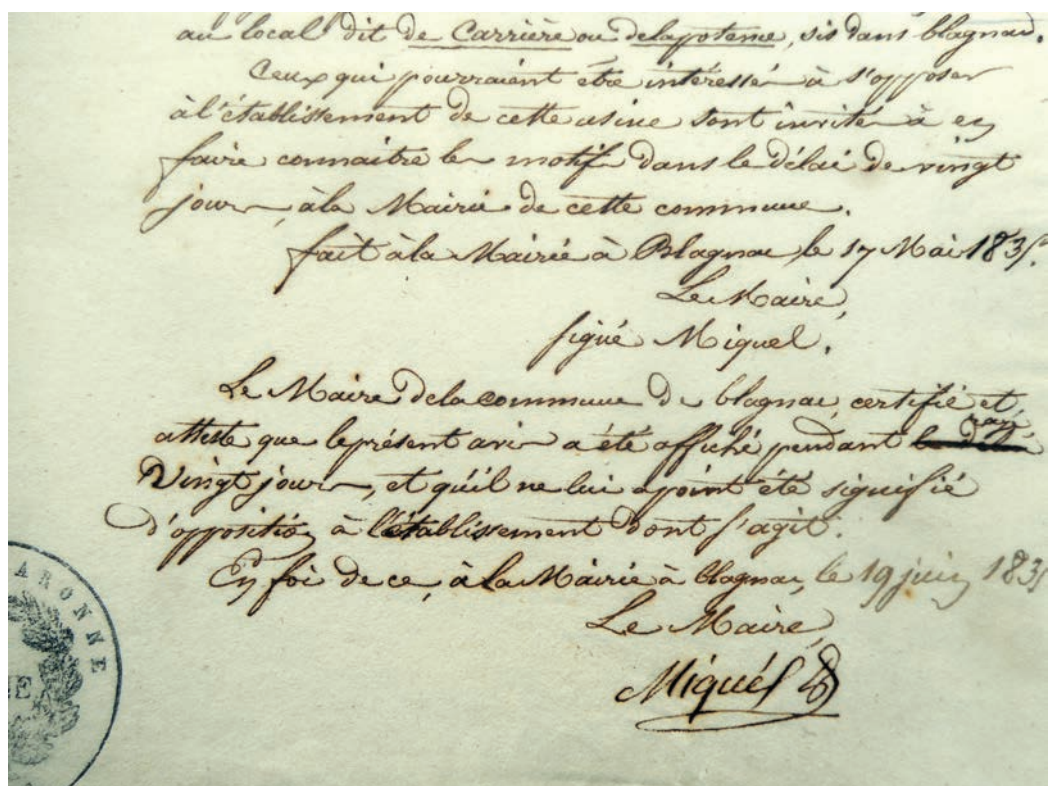 au local dit de Carrière ou delapoterne, sis dans blagnac.
Ceux qui pourraient être intéressés à s'opposer
à l'établissement de cette usine sont invités à en
faire connaitre les motifs dans le délai de vingt
jours, à la Mairie de cette commune.
fait à la Mairie à Blagnac le 17 Mai 1835.
Le Maire,
signé Miquel.
Le Maire dela commune de blagnac, certifie et
atteste que le présent avis a été affiché pendant
Vingt jours, et qu'il ne lui a point été signifié
d'opposition à l'établissement dont s'agit.
En foi de ce, à la Mairie à blagnac, le 19 juin 1835
Le Maire
Miquel
ARONNE